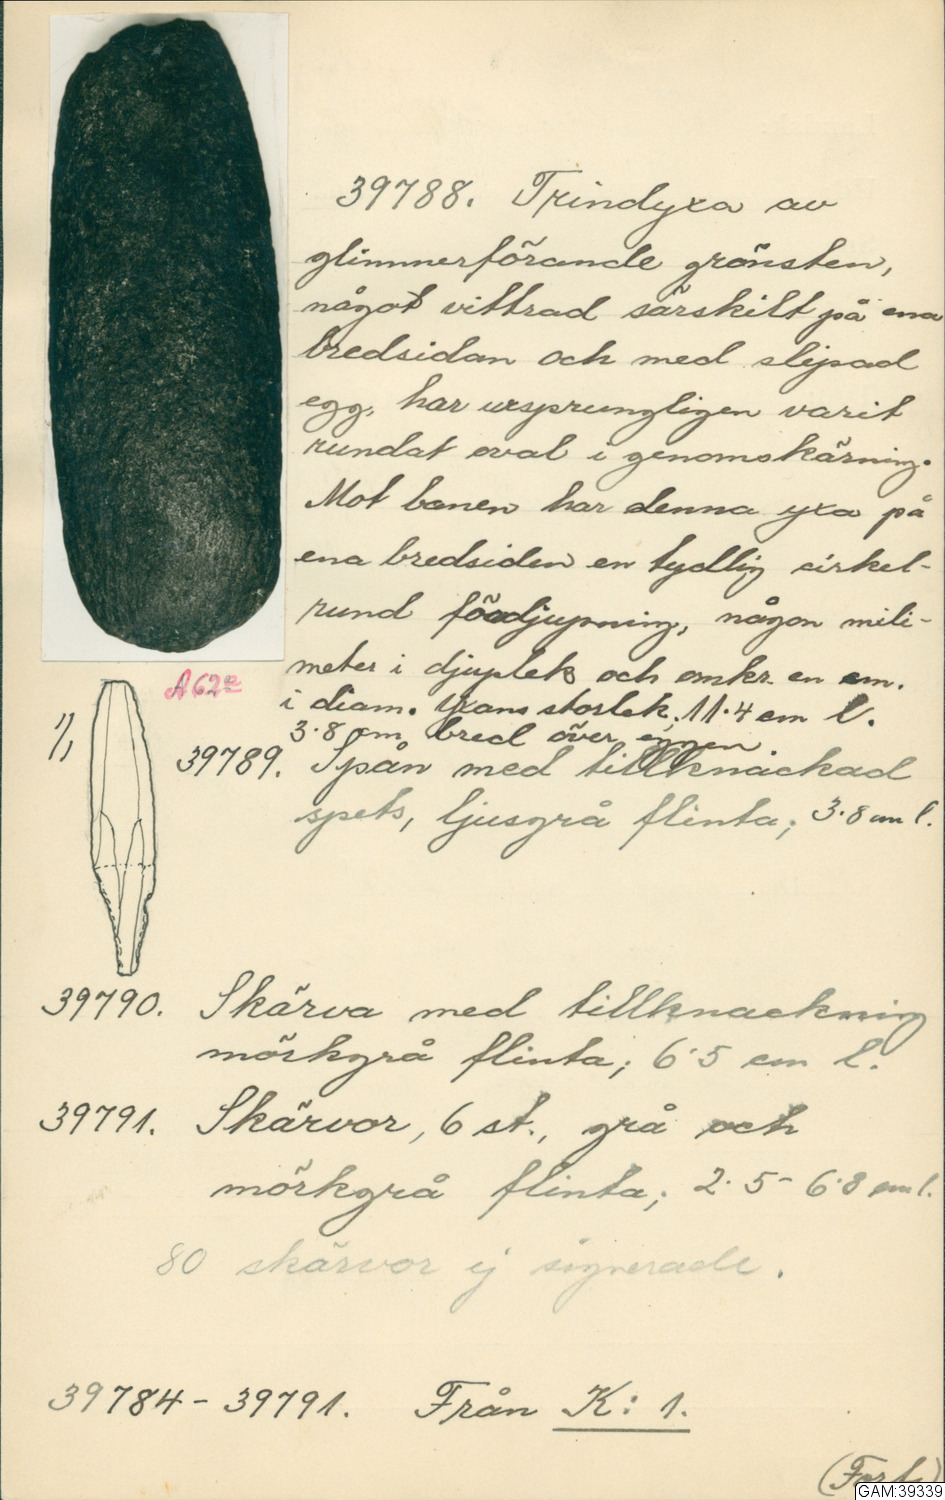 39788. Trindyxa av
glimmerförande grönsten,
något vittrad särskilt på ena
bredsidan och med slipad
egg, har ursprungligen varit
rundat oval i genomskärning.
Mot banen har denna yxa på
ena bredsiden en tydlig cirkel-
rund fördjupning, någon mili-
meter i djuplek och omkr. en cm.
i diam. Yxans storlek. 11.4 cm l.
3.8 cm bred över eggen.
A62
1/1
39789. Spån med tillknackad
spets, ljusgrå flinta; 3.8 cm l.
39790. Skärva med tillknackning
mörkgrå flinta; 6.5 cm l.
39791. Skärvor, 6 st., grå och
mörkgrå flinta; 2.5-6.8 cm l.
80 skärvor ej signerade.
39784-39791. Från K: 1.
(Forts.)
GAM:39339